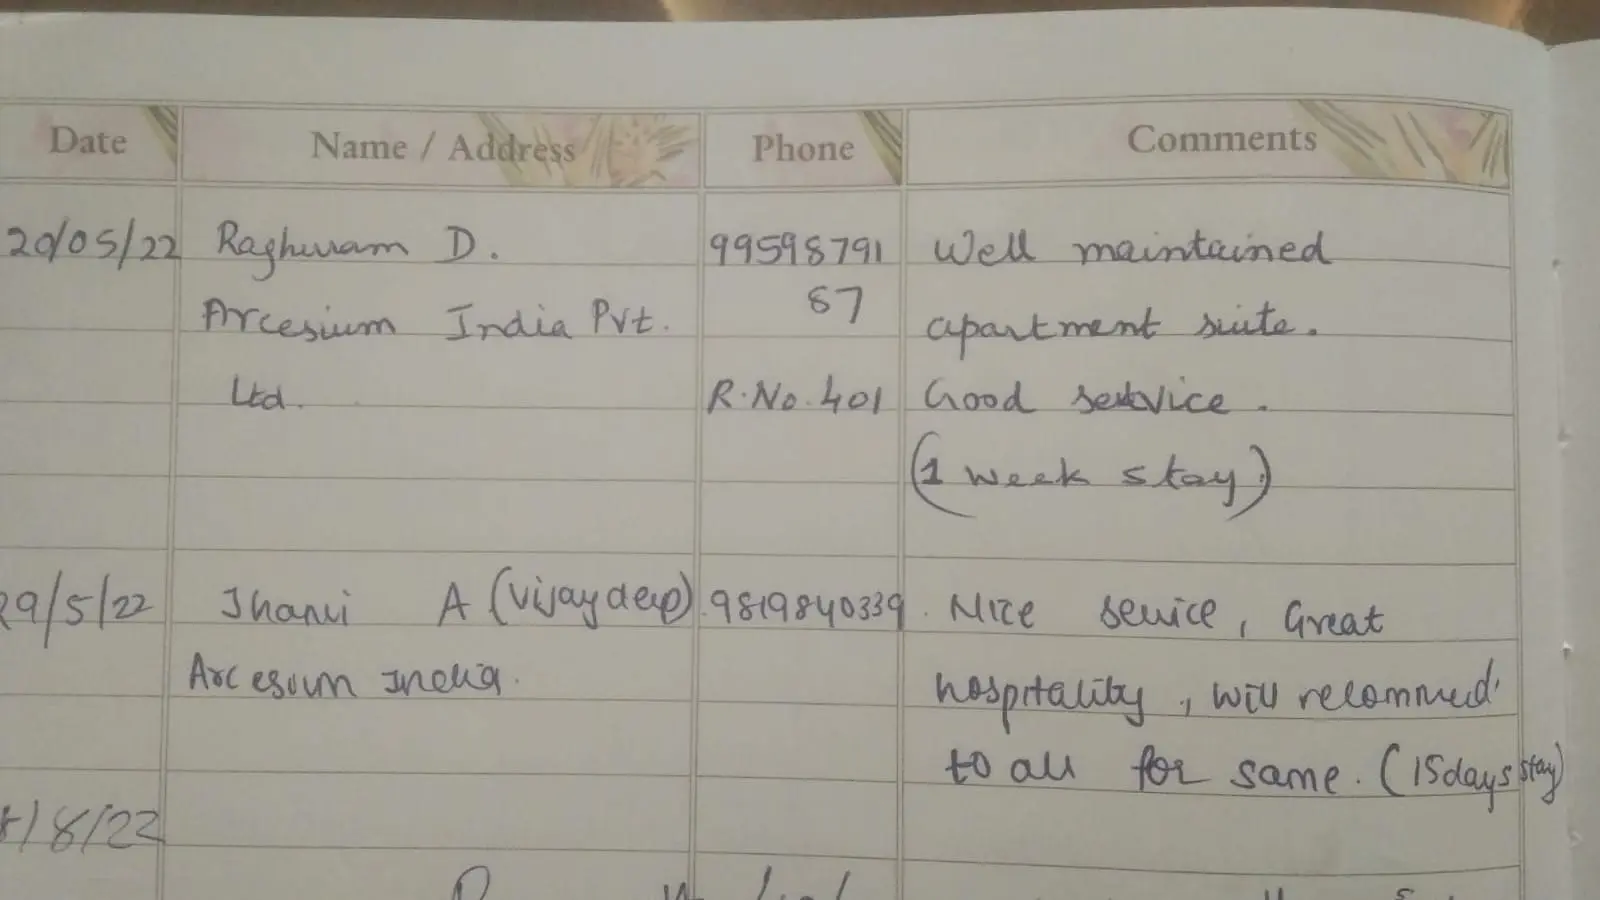 Date Name / Address Phone Comments
20/05/22 Raghuram D. 99598791 Well maintained
87
Arcesium India Pvt. apartment suite.
Ltd. R.No.401 Good service.
(1 week stay)
29/5/22 Jhanvi A (Vijaydeep) 9819840339. Nice service, Great
Arcesium India. hospitality, will recommed
to all for same. (15days stay)
/8/22